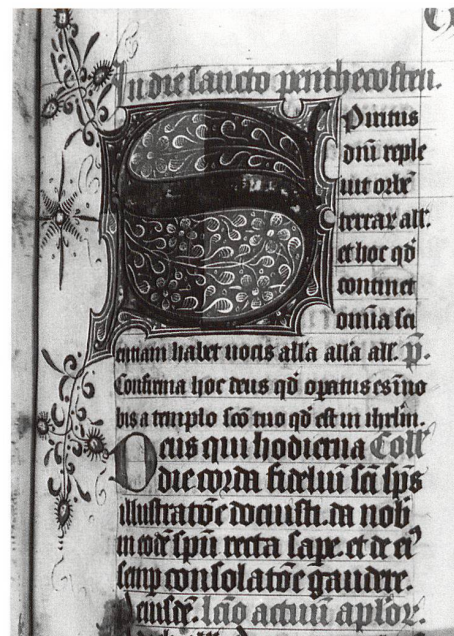 In die sancto penthecosten.
Spiritus
dnī reple
uit orbē
terrar all'.
et hoc qd̄
continet
omīa sci
entiam habet uocis all'a all'a all'. p̄.
Confirma hoc deus qd̄ opatus es ī no
bis a templo scō tuo qd̄ est in ihrlm̄.
Deus qui hodierna Coll'
die corda fideliū sc̄i sp̄s
illustratōe docuisti. da nob̄
in eodē sp̄u recta sape. et de ei9
semp consolatōe gaudere.
eiusdē. lc̄io actuū aplor.